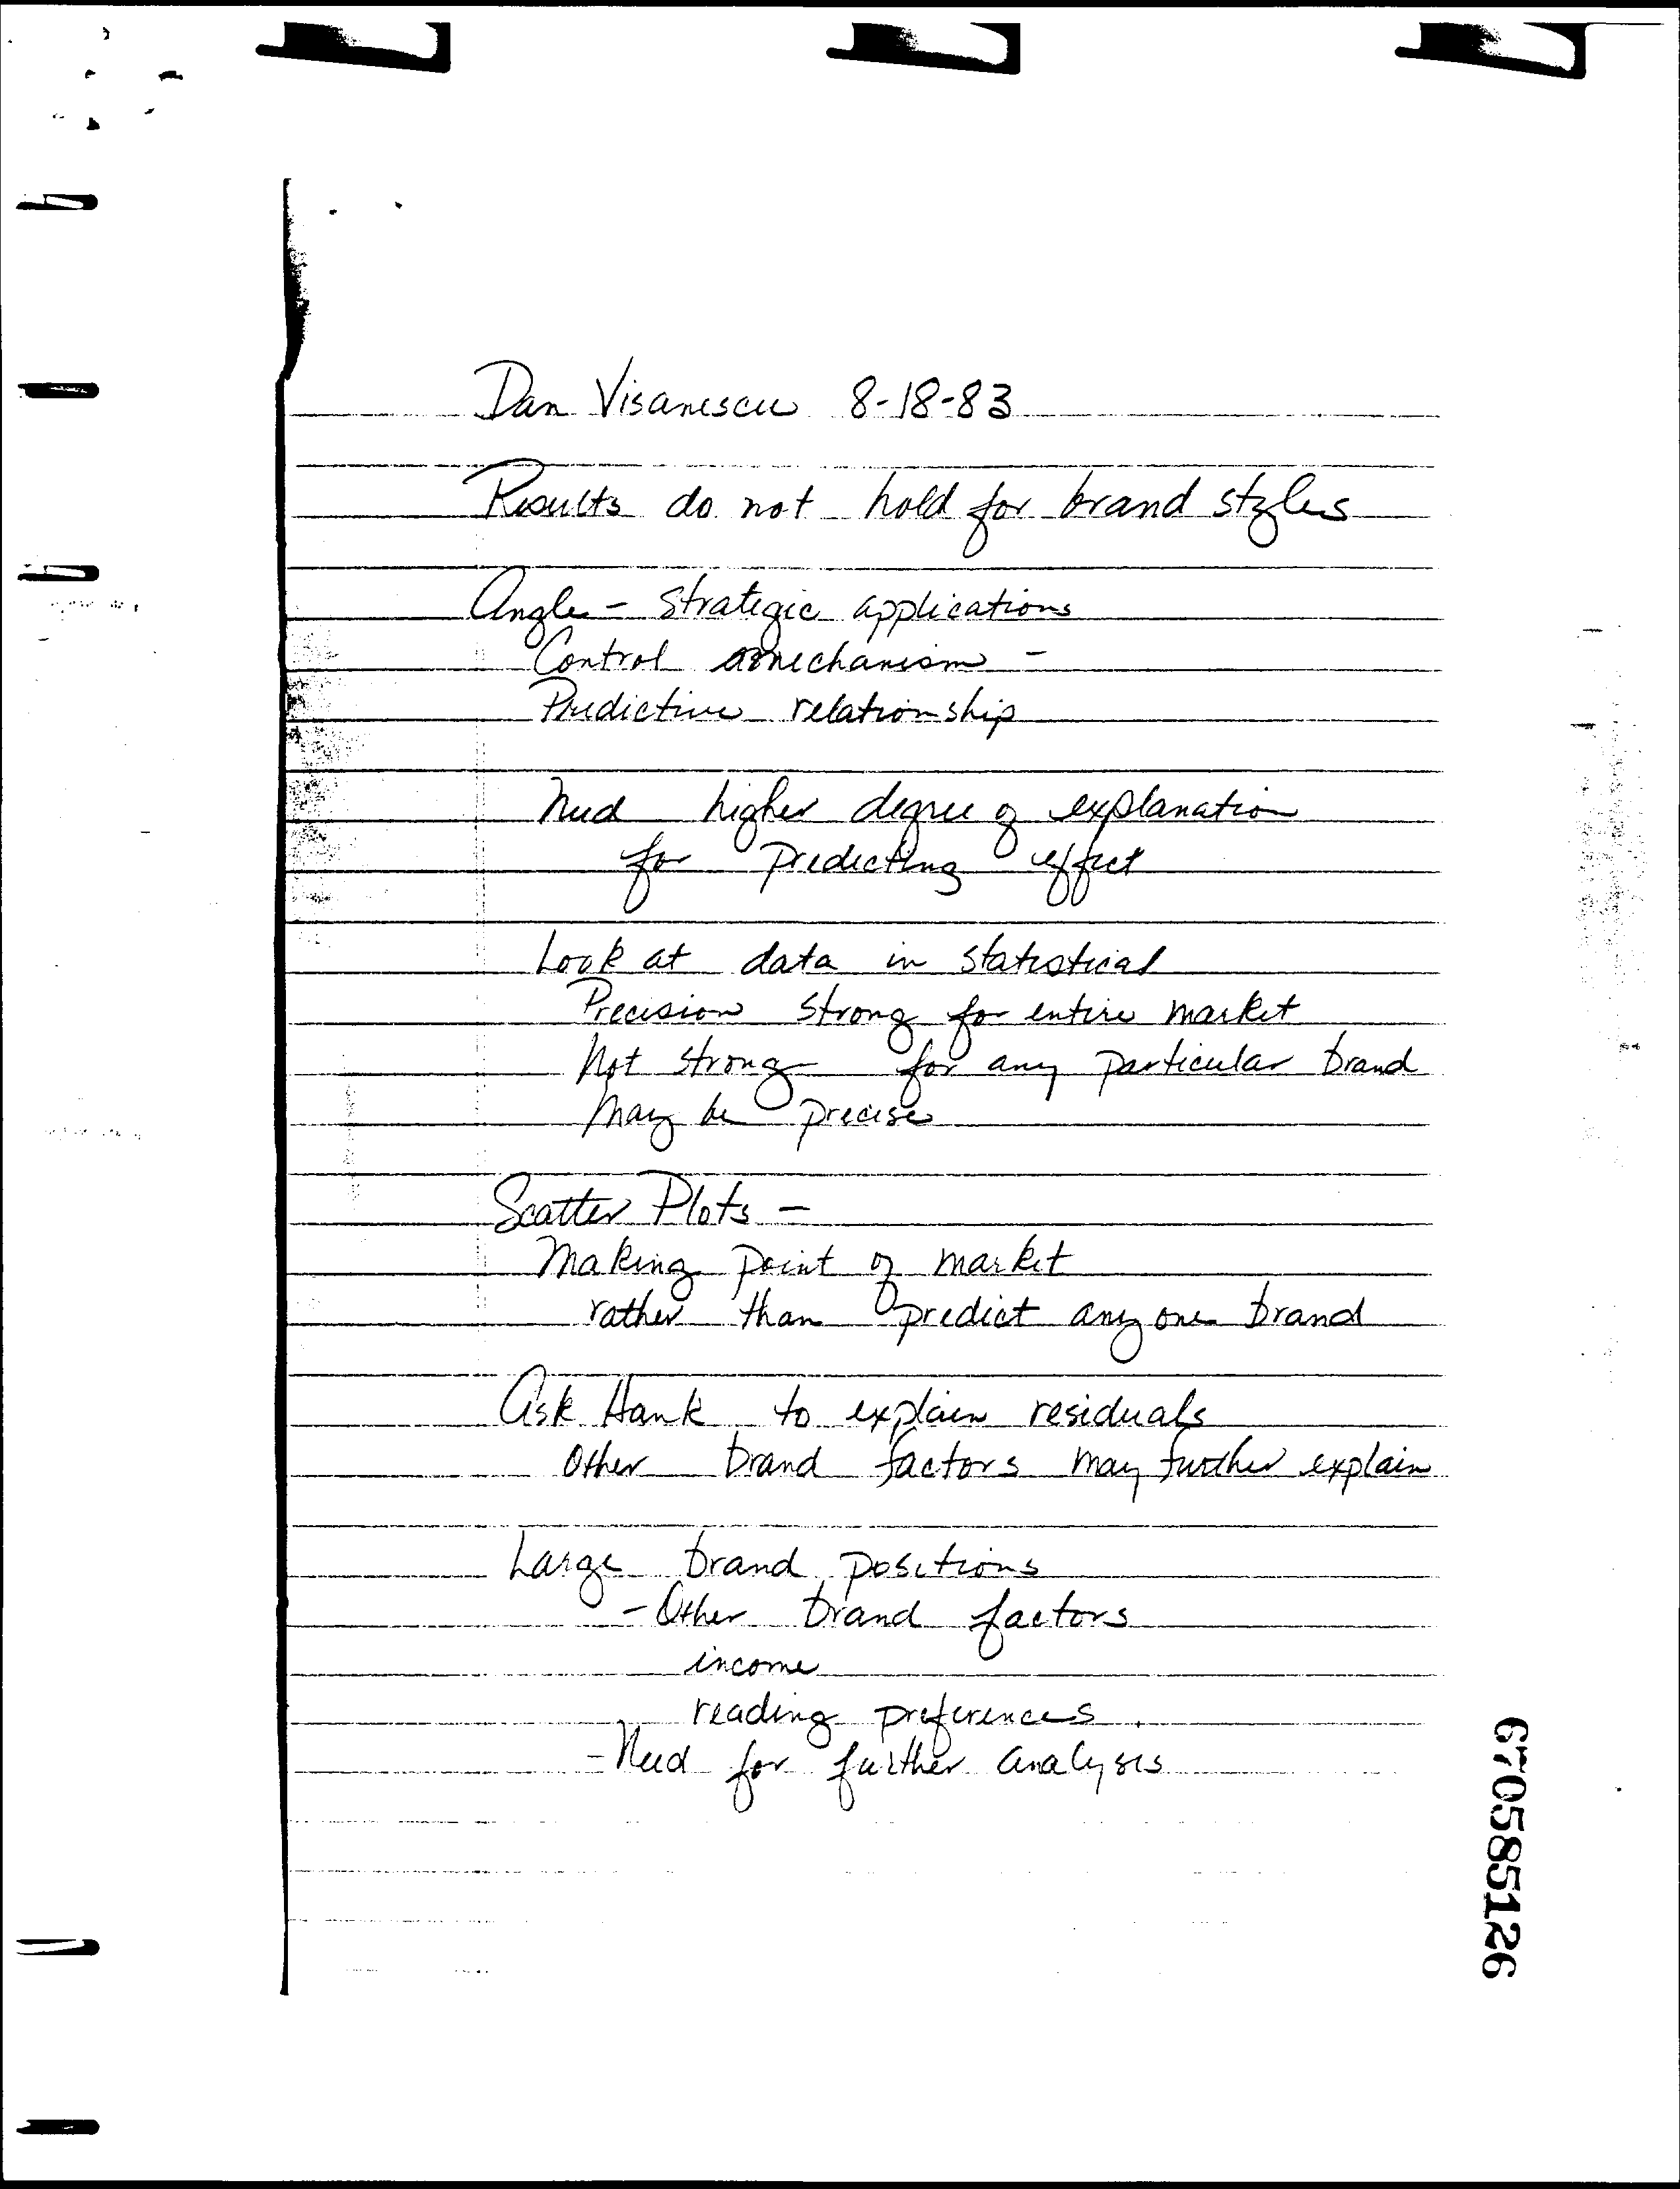 Dan Visanescu 8-18-83
Results do not hold for brand styles
Angle - Strategic applications
Control mechanism -
Predictive relationship
Need higher degree of explanation
for predicting effect
Look at data in statistical
Precision strong for entire market
Not strong for any particular brand
May be precise
Scatter Plots -
Making point of market
rather than predict any one brand
Ask Hank to explain residuals
Other brand factors may further explain
Large brand positions
- Other brand factors
income
reading preferences.
- Need for further analysis
670585126